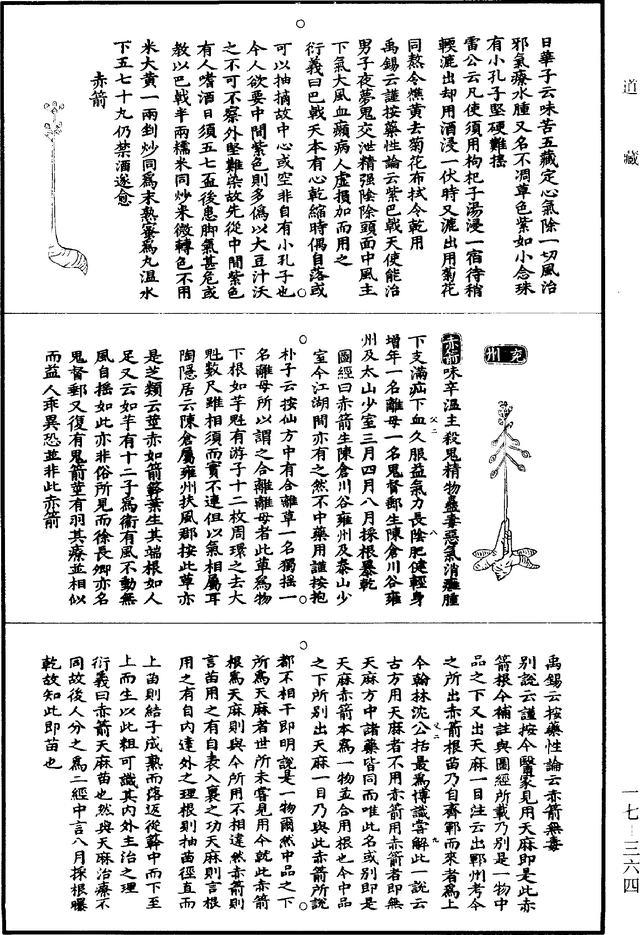 道藏
日華子云味苦五藏定心氣除一切風治
邪氣療水腫又名不凋草色紫如小念珠
有小孔子堅硬難擣
雷公云凡使須用枸杞子湯浸一宿待稍
軟漉出却用酒浸一伏時又漉出用菊花
同熬令燋黄去菊花布拭令乾用
禹錫云謹按藥性論云紫巴戟天使能治
男子夜夢鬼交泄精强陰除頭面中風主
下氣大風血癩病人虛損加而用之
衍義曰巴戟天本有心乾縮時偶自落或
可以抽摘故中心或空非自有小孔子也
今人欲要中間紫色則多僞以大豆汁沃
之不可不察外堅難染故先從中間紫色
有人嗜酒日須五七盃後患脚氣甚危或
教以巴戟半兩糯米同炒米微轉色不用
米大黄一兩剉炒同爲末熟蜜爲丸温水
下五七十九仍禁酒遂愈
赤箭
兖州
赤箭味辛温主殺鬼精物蠱毒惡氣消癰腫
下支滿疝下血久服益氣力長陰肥健輕身
增年一名離母一名鬼督郵生陳倉川谷雍
州及太山少室三月四月八月採根暴乾
圖經曰赤箭生陳倉川谷雍州及泰山少
室今江湖間亦有之然不中藥用謹按抱
朴子云按仙方中有合離草一名獨摇一
名離母所以謂之合離離母者此草爲物
下根如芋魁有游子十二枚周環之去大
魁數尺雖相須而實不連但以氣相屬耳
陶隱居云陳倉屬雍州扶風郡按此草亦
是芝類云莖赤如箭簳葉生其端根如人
足又云如芋有十二子爲衛有風不動無
風自摇如此亦非俗所見而徐長卿亦名
鬼督郵又復有鬼箭莖有羽其療並相似
而益人乖異恐並非此赤箭
禹錫云按藥性論云赤箭無毒
別說云謹按今醫家見用天麻即是此赤
箭根今補註與圖經所載乃別是一物中
品之下又出天麻一目注云出鄆州考今
之所出赤箭根苗乃自齊鄆而來者爲上
今翰林沈公括最爲博識嘗解此一說云
古方用天麻者不用赤箭用赤箭者即無
天麻方中諸藥皆同而唯此名或別即是
天麻赤箭本爲一物並合用根也今中品
之下所別出天麻一目乃與此赤箭所說
都不相干即明說是一物爾然中品之下
所爲天麻者世所未嘗見用今就此赤箭
根爲天麻則與今所用不相違然赤箭則
言苗用之有自表入裏之功天麻則言根
用之有自内達外之理根則抽苗徑直而
上苗則結子成熟而落返從簳中而下至
上而生以此粗可識其内外主治之理
衍義曰赤箭天麻苗也然與天麻治療不
同故後人分之爲二經中言八月採根曝
乾故知此即苗也
一七—三六四